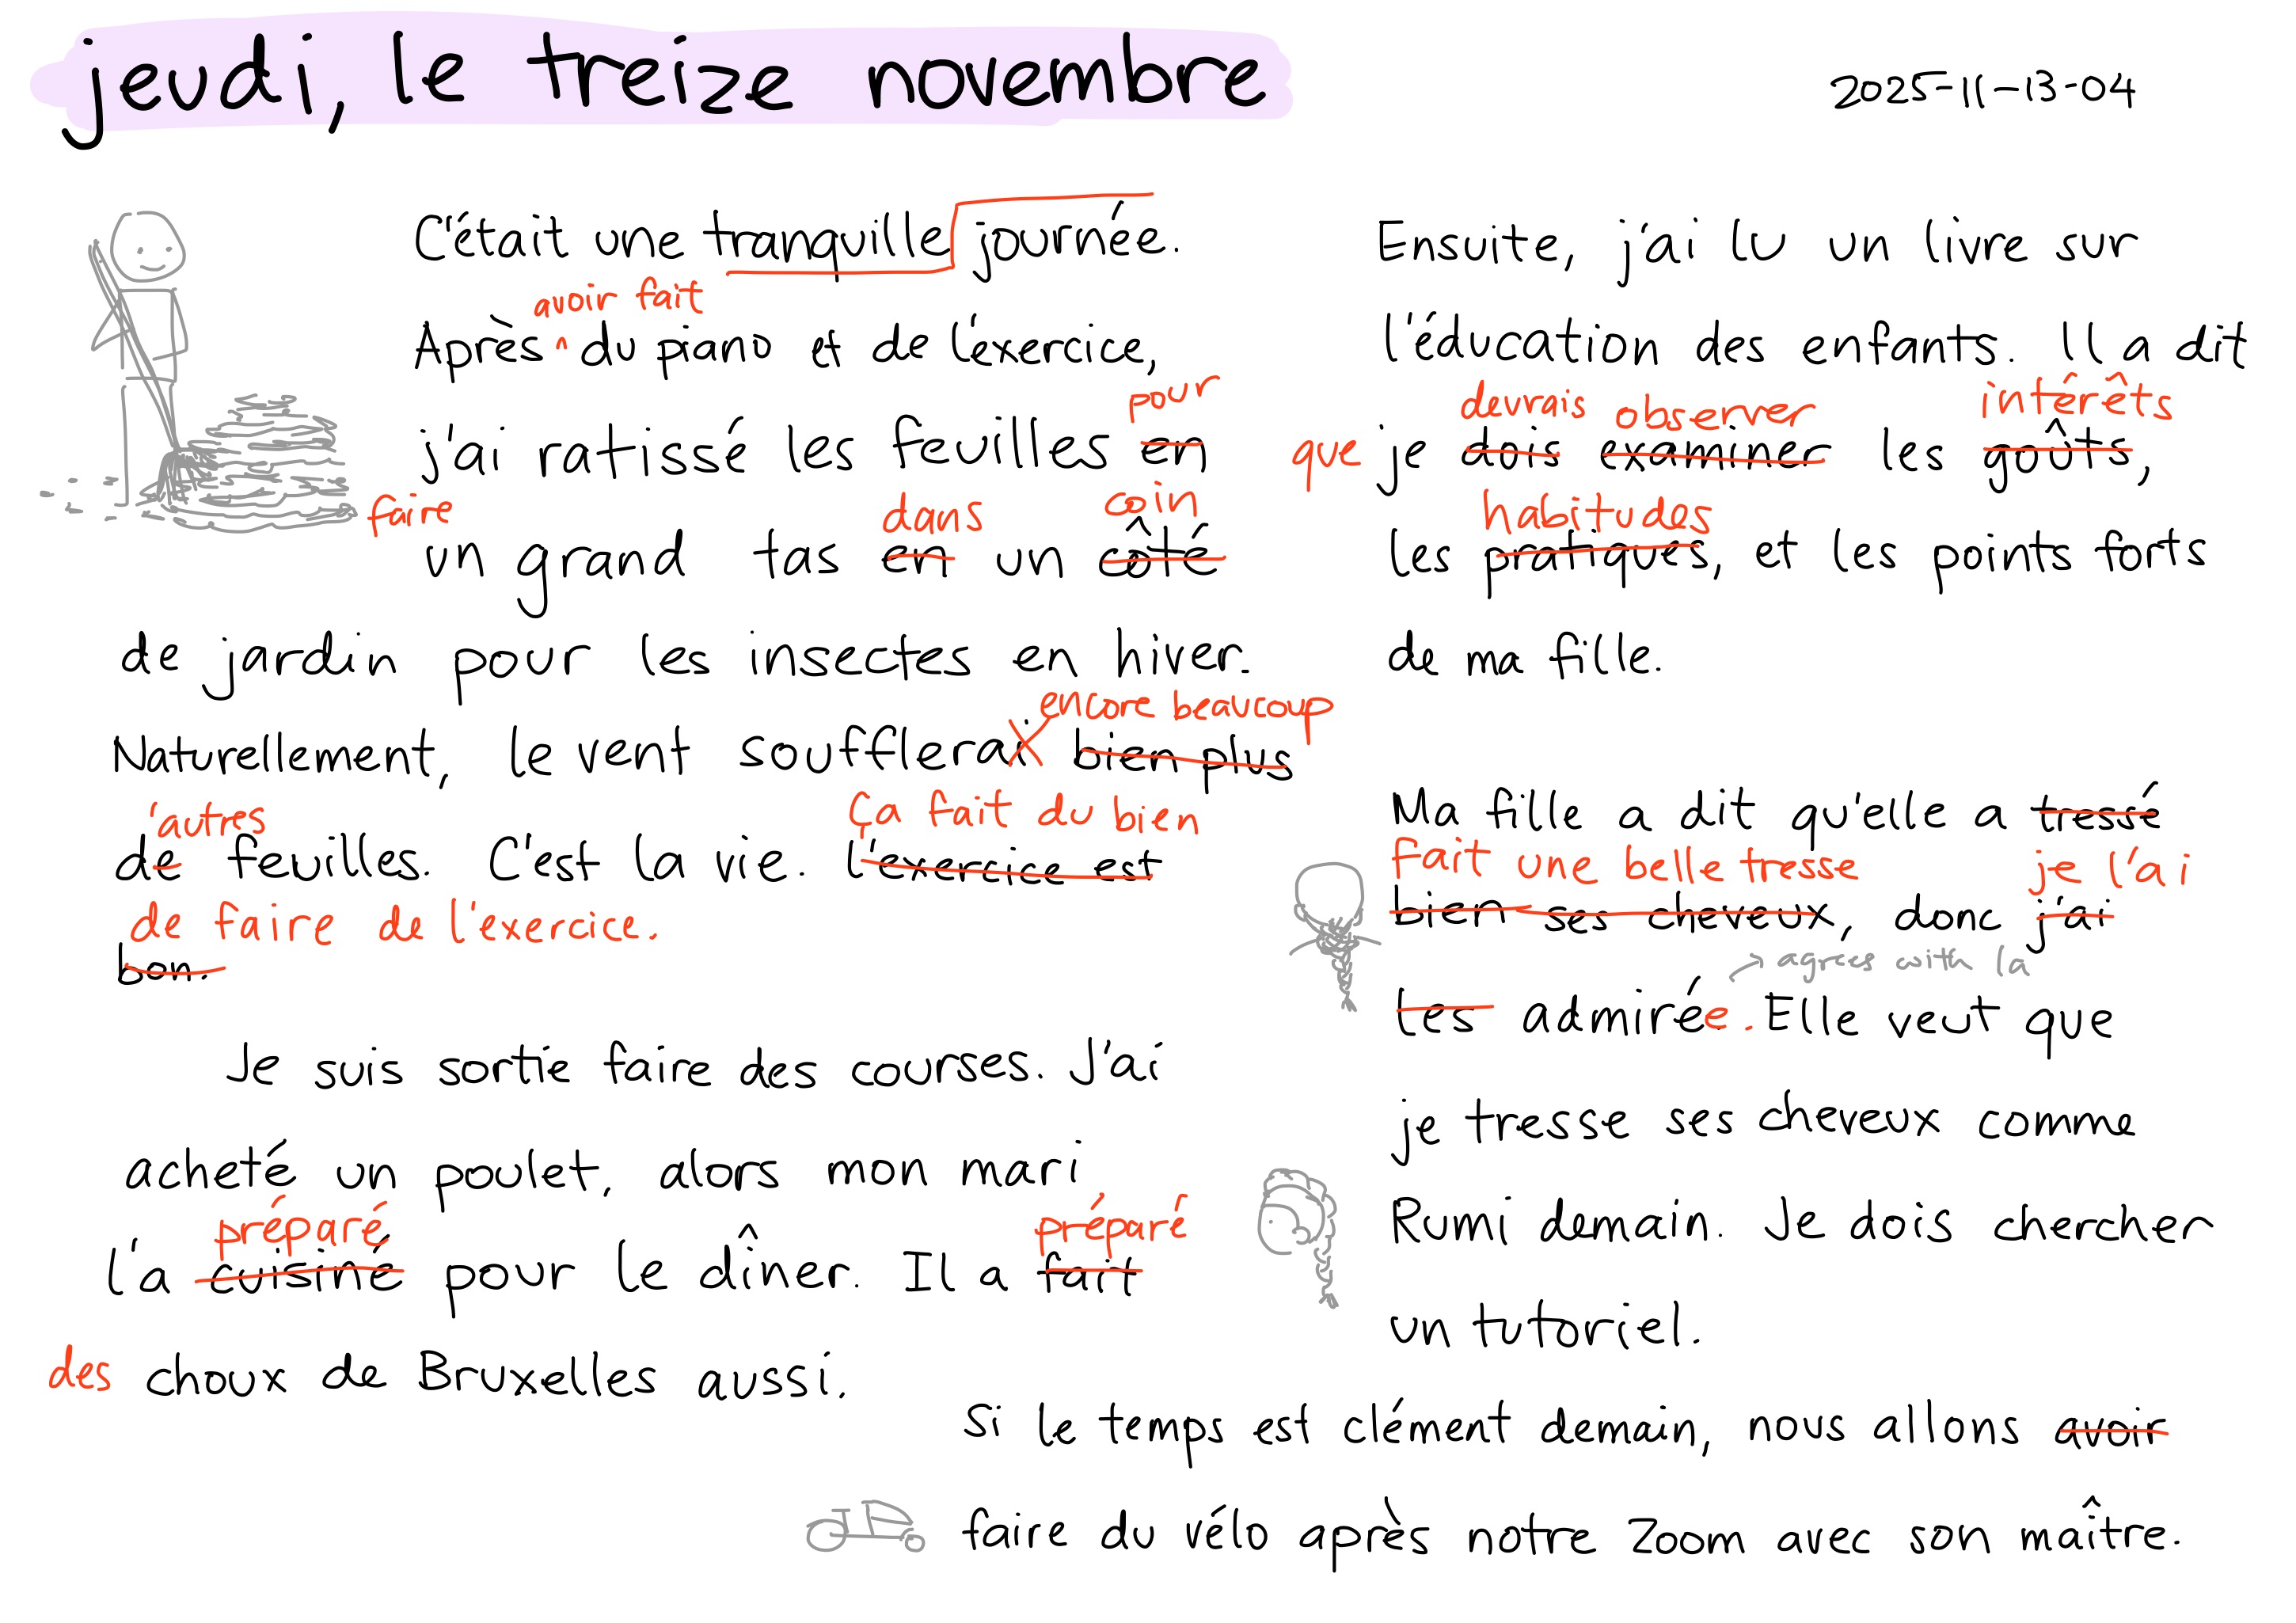 jeudi, le treize novembre
2025-11-13-04
C'était une tranquille journée.
avoir fait
Après ^ du piano et de l'exercice,
pour
j'ai ratissé les feuilles en
faire dans coin
un grand tas en un côté
de jardin pour les insectes en hiver.
encore beaucoup
Naturellement, le vent soufflerai bien plus
'autres Ça fait du bien
de feuilles. C'est la vie. L'exercice est
de faire de l'exercice.
bon.
Je suis sortie faire des courses. J'ai
acheté un poulet, alors mon mari
préparé préparé
l'a cuisiné pour le dîner. Il a fait
des choux de Bruxelles aussi.
Ensuite, j'ai lu un livre sur
l'éducation des enfants. Il a dit
devrais observer intérêts
que je dois examiner les goûts,
habitudes
les pratiques, et les points forts
de ma fille.
Ma fille a dit qu'elle a tressé
fait une belle tresse je l'ai
bien ses cheveux, donc j'ai
→ agrees with la
les admirée. Elle veut que
je tresse ses cheveux comme
Rumi demain. Je dois chercher
un tutoriel.
Si le temps est clément demain, nous allons avoir
faire du vélo après notre Zoom avec son maître.